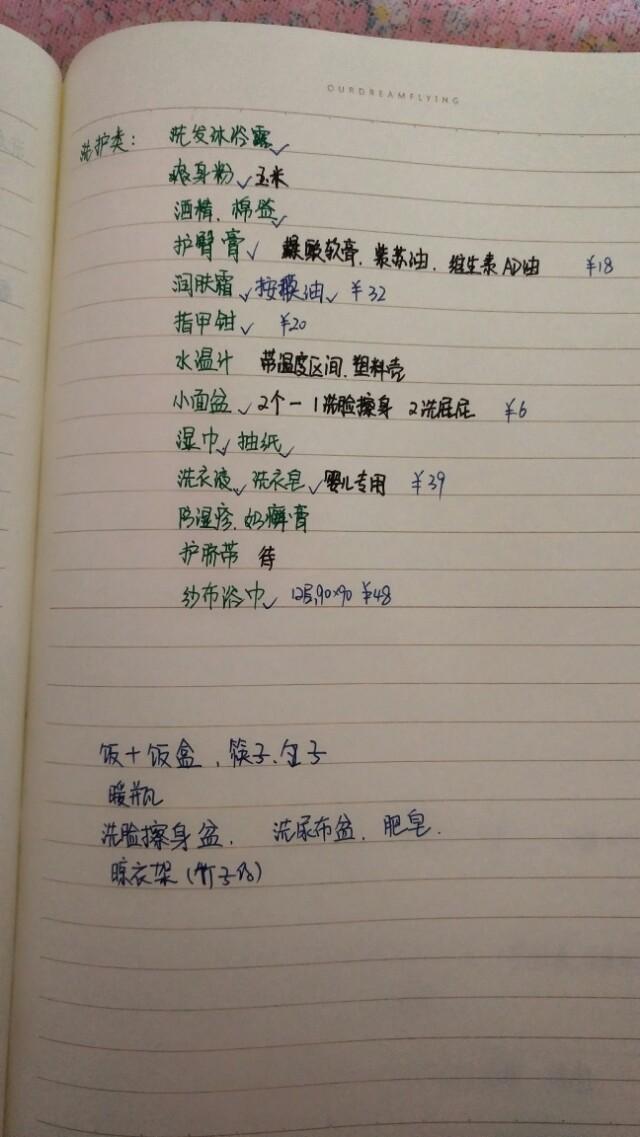 OURDREAMFLYING
洗护类： 洗发沐浴露✓
爽身粉✓ 玉米
酒精、棉签✓
护臀膏✓ 软膏、紫苏油、维生素AD油 ¥18
润肤霜✓ 按摸油✓ ¥32
指甲钳✓ ¥20
水温计 带温度区间、塑料壳
小面盆✓ 2个－1洗脸擦身 2洗屁屁 ¥6
湿巾✓ 抽纸✓
洗衣液✓ 洗衣皂✓ 婴儿专用 ¥39
防湿疹、奶癣膏
护脐带 待
纱布浴巾✓ 12层,90×90 ¥48
饭＋饭盒、筷子、勺子
暖瓶
洗脸擦身盆、 洗尿布盆、肥皂.
晾衣架（竹子的）